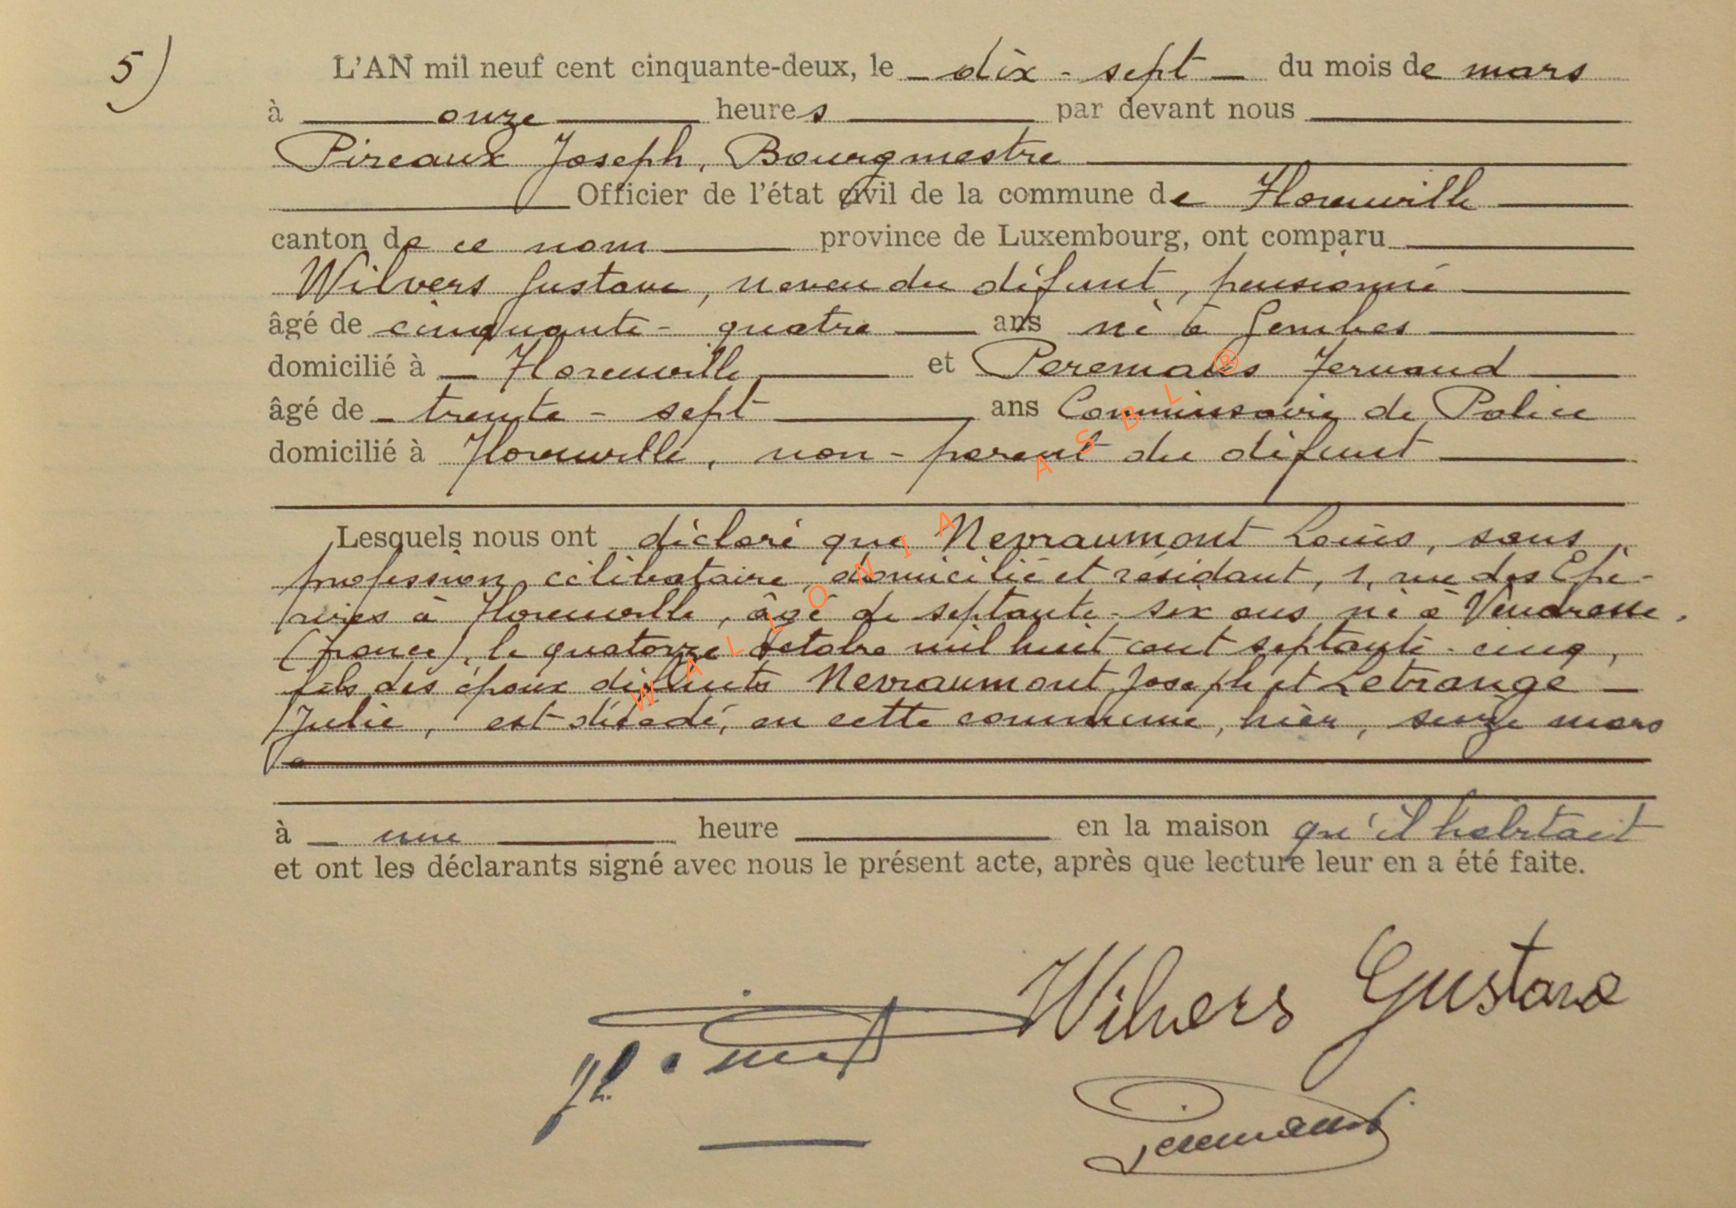 5)
L'AN mil neuf cent cinquante-deux, le dix-sept du mois de mars
à onze heures par devant nous
Pireaux Joseph, Bourgmestre
Officier de l'état civil de la commune de Florenville
canton de ce nom province de Luxembourg, ont comparu
Wilvers Gustave, neveu du défunt, pensionné
âgé de cinquante-quatre ans né à Jambes
domicilié à Florenville et Peremans Fernand
âgé de trente-sept ans Commissaire de Police
domicilié à Florenville, non-parent du défunt
Lesquels nous ont déclaré que Nevraumont Louis, sans
profession, célibataire, domicilié et résidant, 1, rue des Epi-
ceries à Florenville, âgé de septante-six ans né à Vendresse
(France), le quatorze octobre mil huit cent septante-cinq,
fils des époux défunts Nevraumont Joseph et Letrange
Julie, est décédé, en cette commune, hier, seize mars
à une heure en la maison qu'il habitait
et ont les déclarants signé avec nous le présent acte, après que lecture leur en a été faite.
Wilvers Gustave
WALLONIA ASBL ®